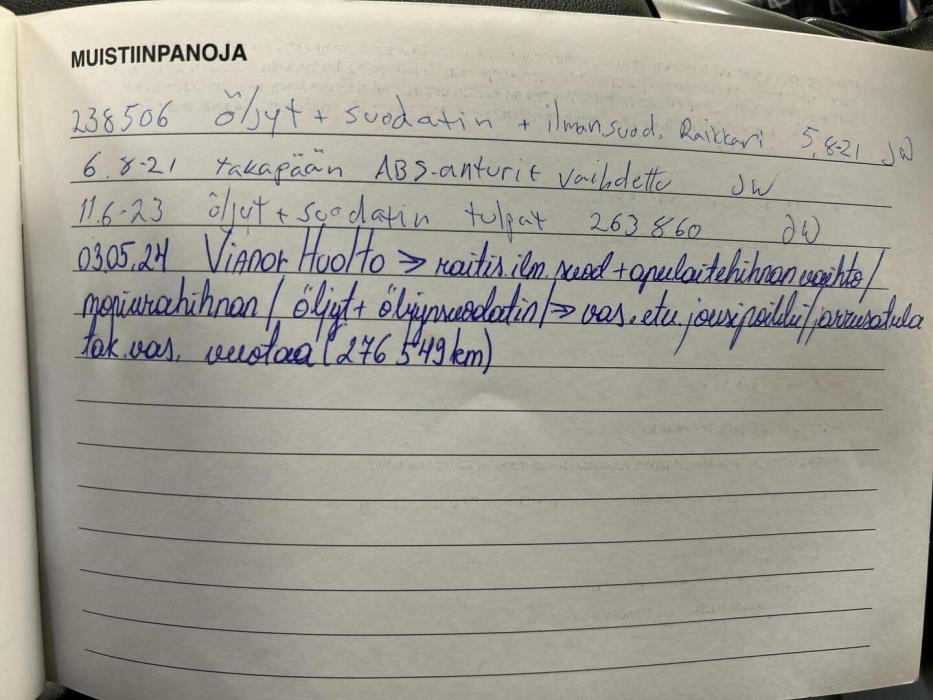 MUISTIINPANOJA
238506 öljyt + suodatin + ilmansuod. Raikkari 5.8-21 JW
6.8-21 takapään ABS-anturit vaihdettu JW
11.6-23 öljyt + suodatin tulpat 263860 JW
03.05.24 Vianor Huolto => raitis.ilm.suod + apulaitehihnan vaihto /
moniurahihnan / öljyt + öljynsuodatin / => vas.etu.jousi poikki / jarrusatula
tak.vas. vuotaa (276 549 km)